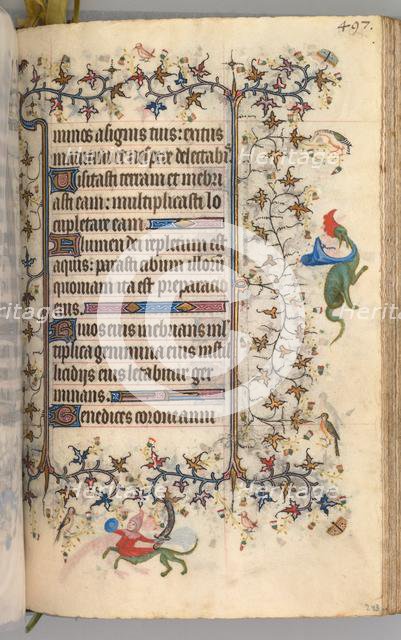 497.
minos a signis tuis: exitus
matutini et vespere delectabis
Visitasti terram et inebri
asti eam: multiplicasti lo
cupletare eam
Flumen dei repletum est
aquis: parasti cibum illorum
quoniam ita est preparatio
eius.
Rivos eius inebrians mul
tiplica genimina eius in stil
licidijs eius letabitur ger
minans.
Benedices corone anni
248
Heritage